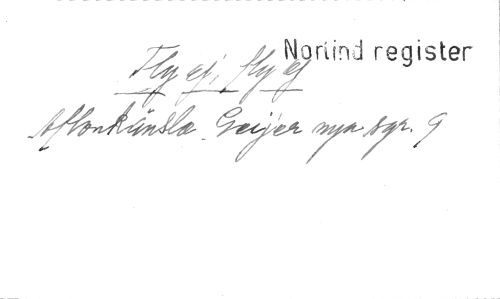 Norlind register
Fly ej, fly ej
Aftonkänsla Geijer nya sgr. 9